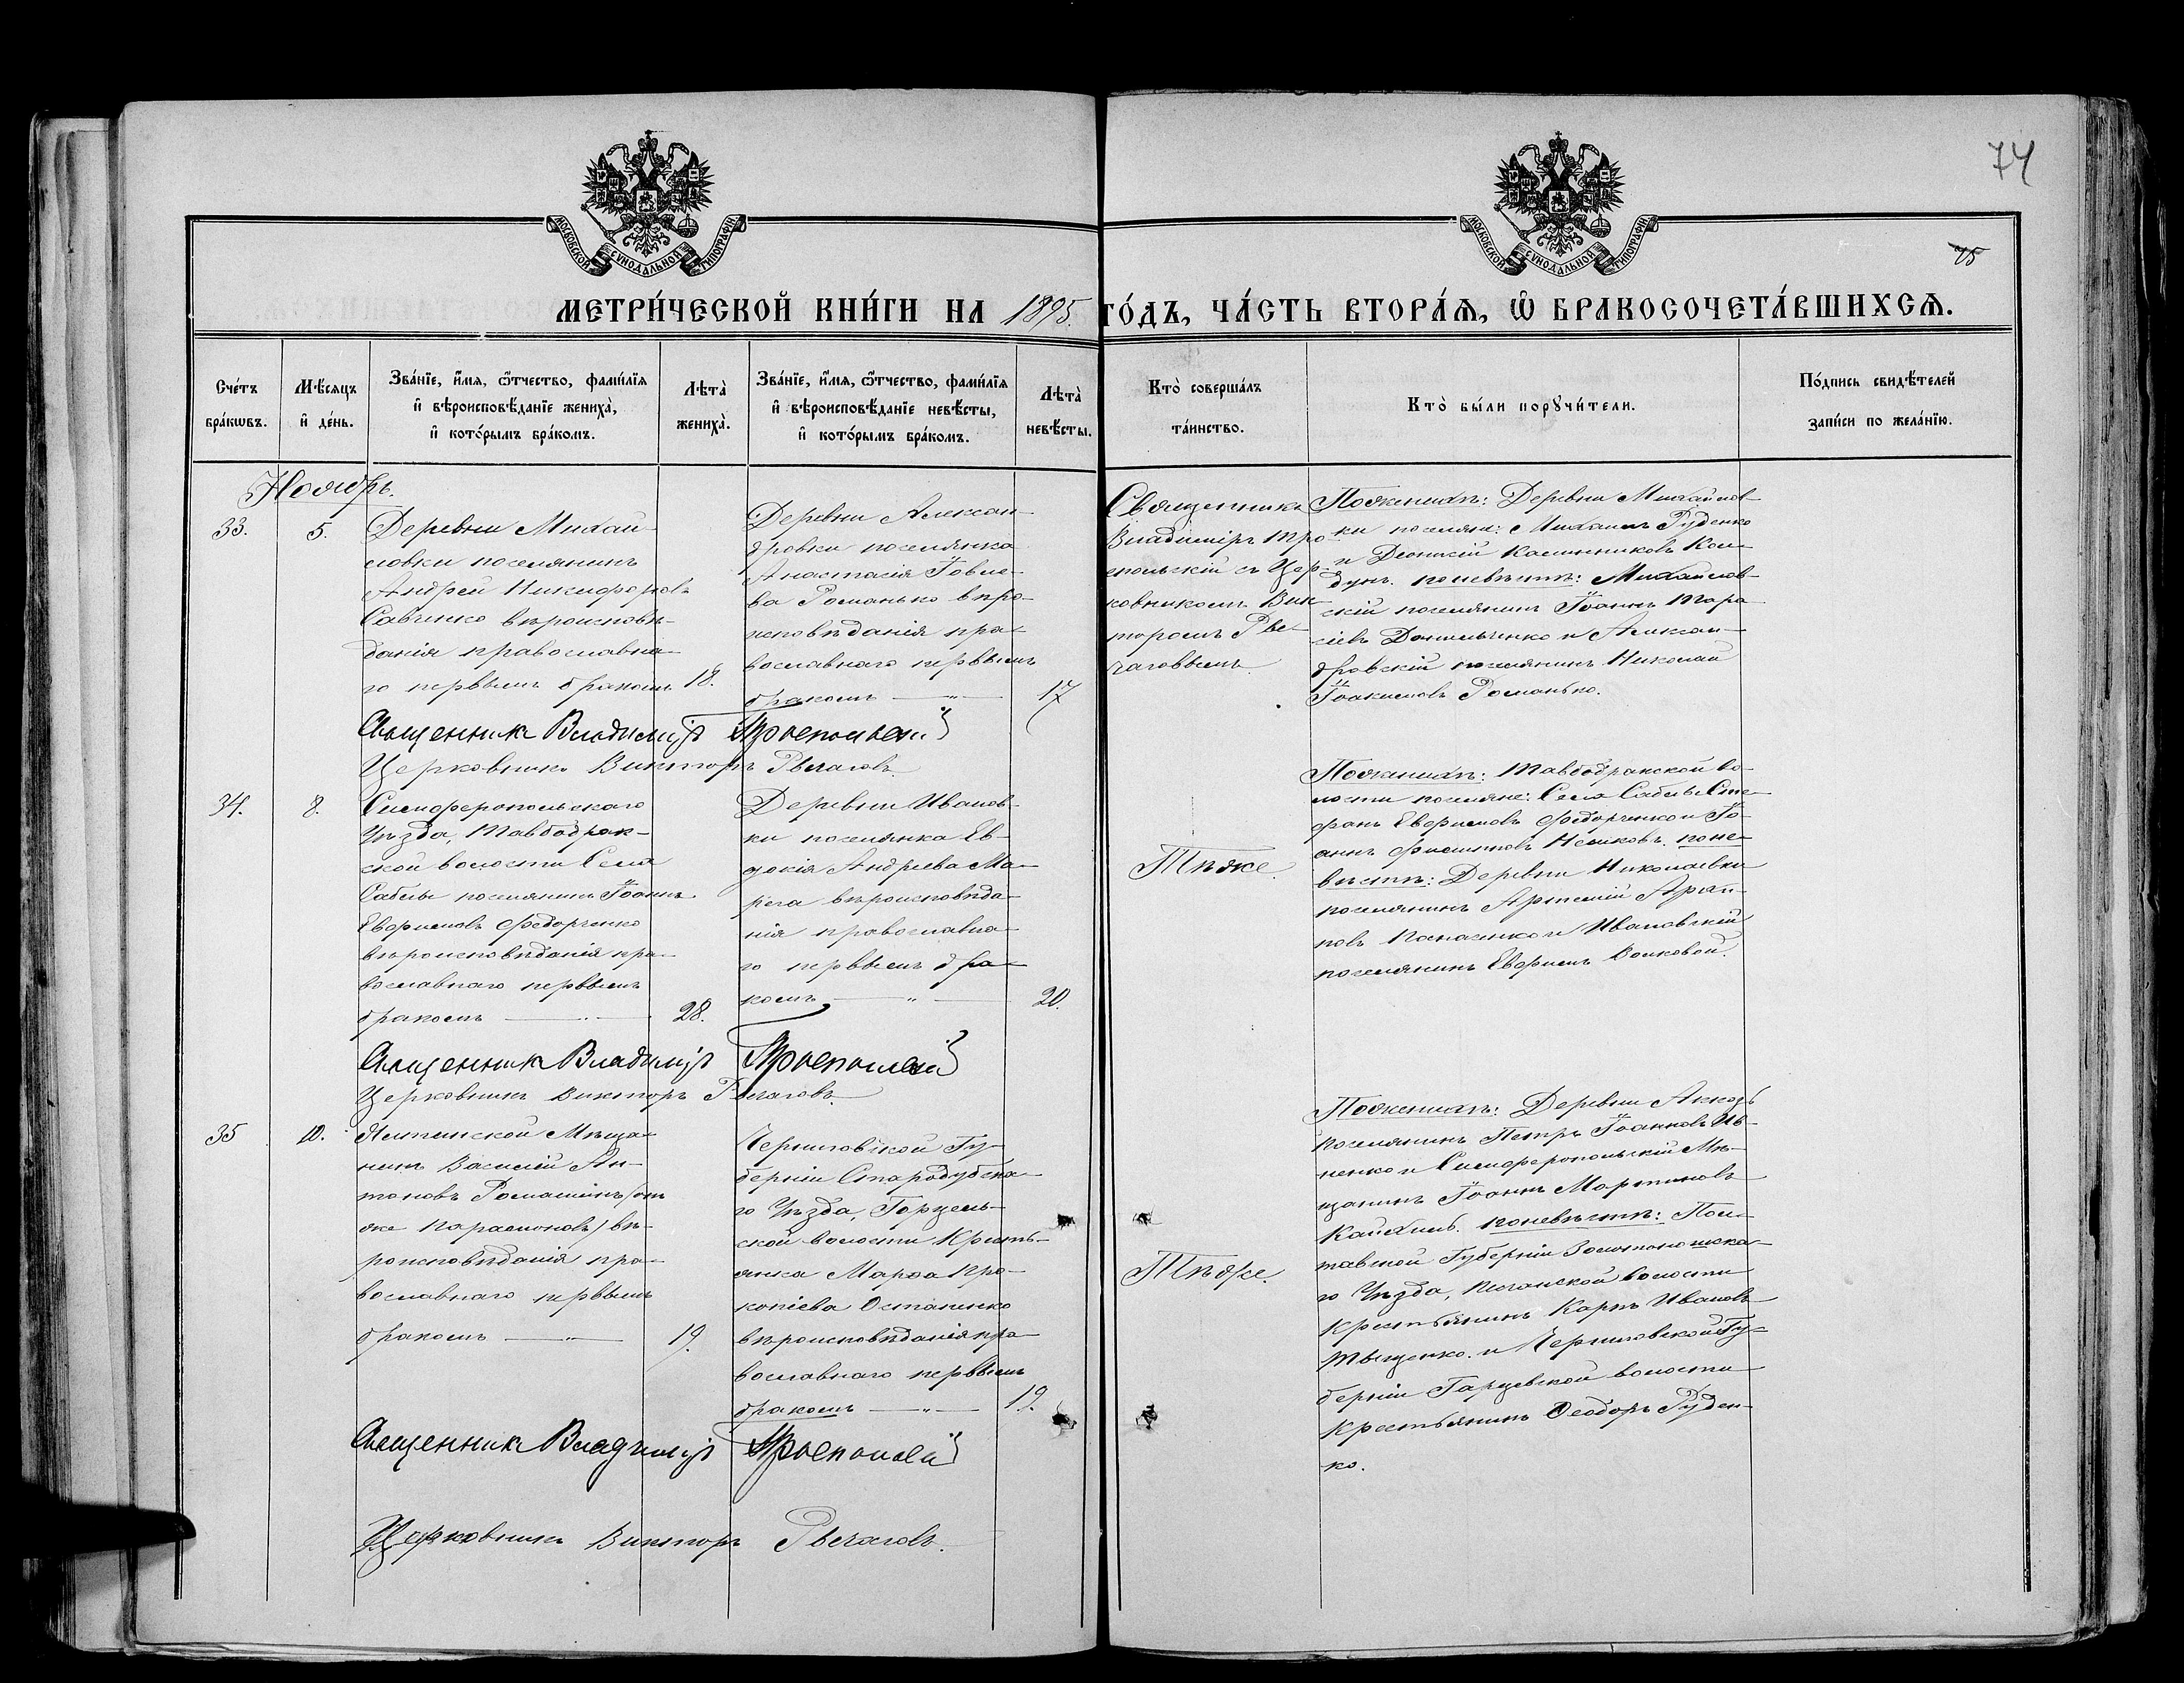 74
75
МОСКОВСКОЙ СУНОДАЛЬНОЙ ТИПОГРАФІИ
МОСКОВСКОЙ СУНОДАЛЬНОЙ ТИПОГРАФІИ
МЕТРИ́ЧЕСКОЙ КНИ́ГИ НА 1895. ГО́ДЪ, ЧА́СТЬ ВТОРА́Ѧ, Ѡ҆ БРАКОСОЧЕТА́ВШИХСѦ.
Сче́тъ
бра́кѡвъ.
Мѣ́сѧцъ
и҆ де́нь.
Зва́нїе, и҆́мѧ, ѻ҆́тчество, фамилїѧ
и҆ вѣроисповѣ́данїе жениха̀,
и҆ кото́рымъ бра́комъ.
Лѣта̀
жениха̀.
Зва́нїе, и҆́мѧ, ѻ҆́тчество, фамилїѧ
и҆ вѣроисповѣ́данїе невѣ́сты,
и҆ кото́рымъ бра́комъ.
Лѣта̀
невѣ́сты.
Кто̀ соверша́лъ
та́инство.
Кто̀ бы́ли порꙋчи́тели.
По́дпись свидѣ́телей
за́писи по жела́нїю.
Ноябрь.
33.
5.
Деревни Михай-
ловки поселянинъ
Андрей Никифоровъ
Савченко вѣроисповѣ-
данія православна-
го первымъ бракомъ
18.
Деревни Алексан-
дровки поселянка
Анастасія Іовле-
ва Романько вѣро-
исповѣданія пра-
вославнаго первымъ
бракомъ — „ —
17
Священникъ
Владиміръ Тро-
епольскій съ Цер-
ковникомъ Вик-
торомъ Рве-
чаговымъ.
Пожениху: Деревни Михайлов-
ки поселяне: Михаилъ Руденко
и Діонисій Калинниковъ Кол-
дунъ. поневѣстѣ: Михайлов-
скій поселянинъ Іоаннъ Тара-
сіевъ Данильченко и Алексан-
дровскій поселянинъ Николай
Іоакимовъ Романько.
Священникъ Владиміръ Троепольскій
Церковникъ Викторъ Рвечаговъ.
34.
8.
Симферопольскаго
Уѣзда, Тавбодрак-
ской волости Села
Саблы поселянинъ Іоаннъ
Евфимовъ Федорченко
вѣроисповѣданія пра-
вославнаго первымъ
бракомъ — „ —
28.
Деревни Иванов-
ки поселянка Ев-
докія Андреева Ма-
вѣроисповѣда-
нія православна-
го первымъ бра-
комъ — „ —
20.
Тѣже.
Пожениху: Тавбодракской во-
лости поселяне: Села Саблы Сте-
фанъ Евфимовъ Федорченко и Іо-
аннъ Филипповъ поне-
вѣстѣ: Деревни Николаевки
поселянинъ Артемій
и Ивановскій
поселянинъ Евфимъ Волковой.
Священникъ Владиміръ Троепольскій
Церковникъ Викторъ Рвечаговъ.
35
10.
Ялтинской Мѣща-
нинъ Василій Ан-
тоновъ Ромашинъ/онъ
же Парамоновъ/ вѣ-
роисповѣданія пра-
вославнаго первымъ
бракомъ — „ —
19.
Черниговской Гу-
берніи Стародубска-
го Уѣзда,
ской волости Кресть-
янка Марѳа Про-
копіева Остапенко
вѣроисповѣданія пра-
вославнаго первымъ
бракомъ — „ —
19.
Тѣже.
Пожениху: Деревни Аккозъ
поселянинъ Петръ Іоанновъ Ив-
ненко и Симферопольскій Мѣ-
щанинъ Іоаннъ Мартиновъ
поневѣстѣ: Пол-
тавской Губерніи Золотоношска-
го Уѣзда, Песчанской волости
крестьянинъ Карпъ Ивановъ
Тыщенко. и Черниговской Гу-
берніи Гарцевской волости
крестьянинъ Ѳеодоръ Руден-
ко.
Священникъ Владиміръ Троепольскій
Церковникъ Викторъ Рвечаговъ.